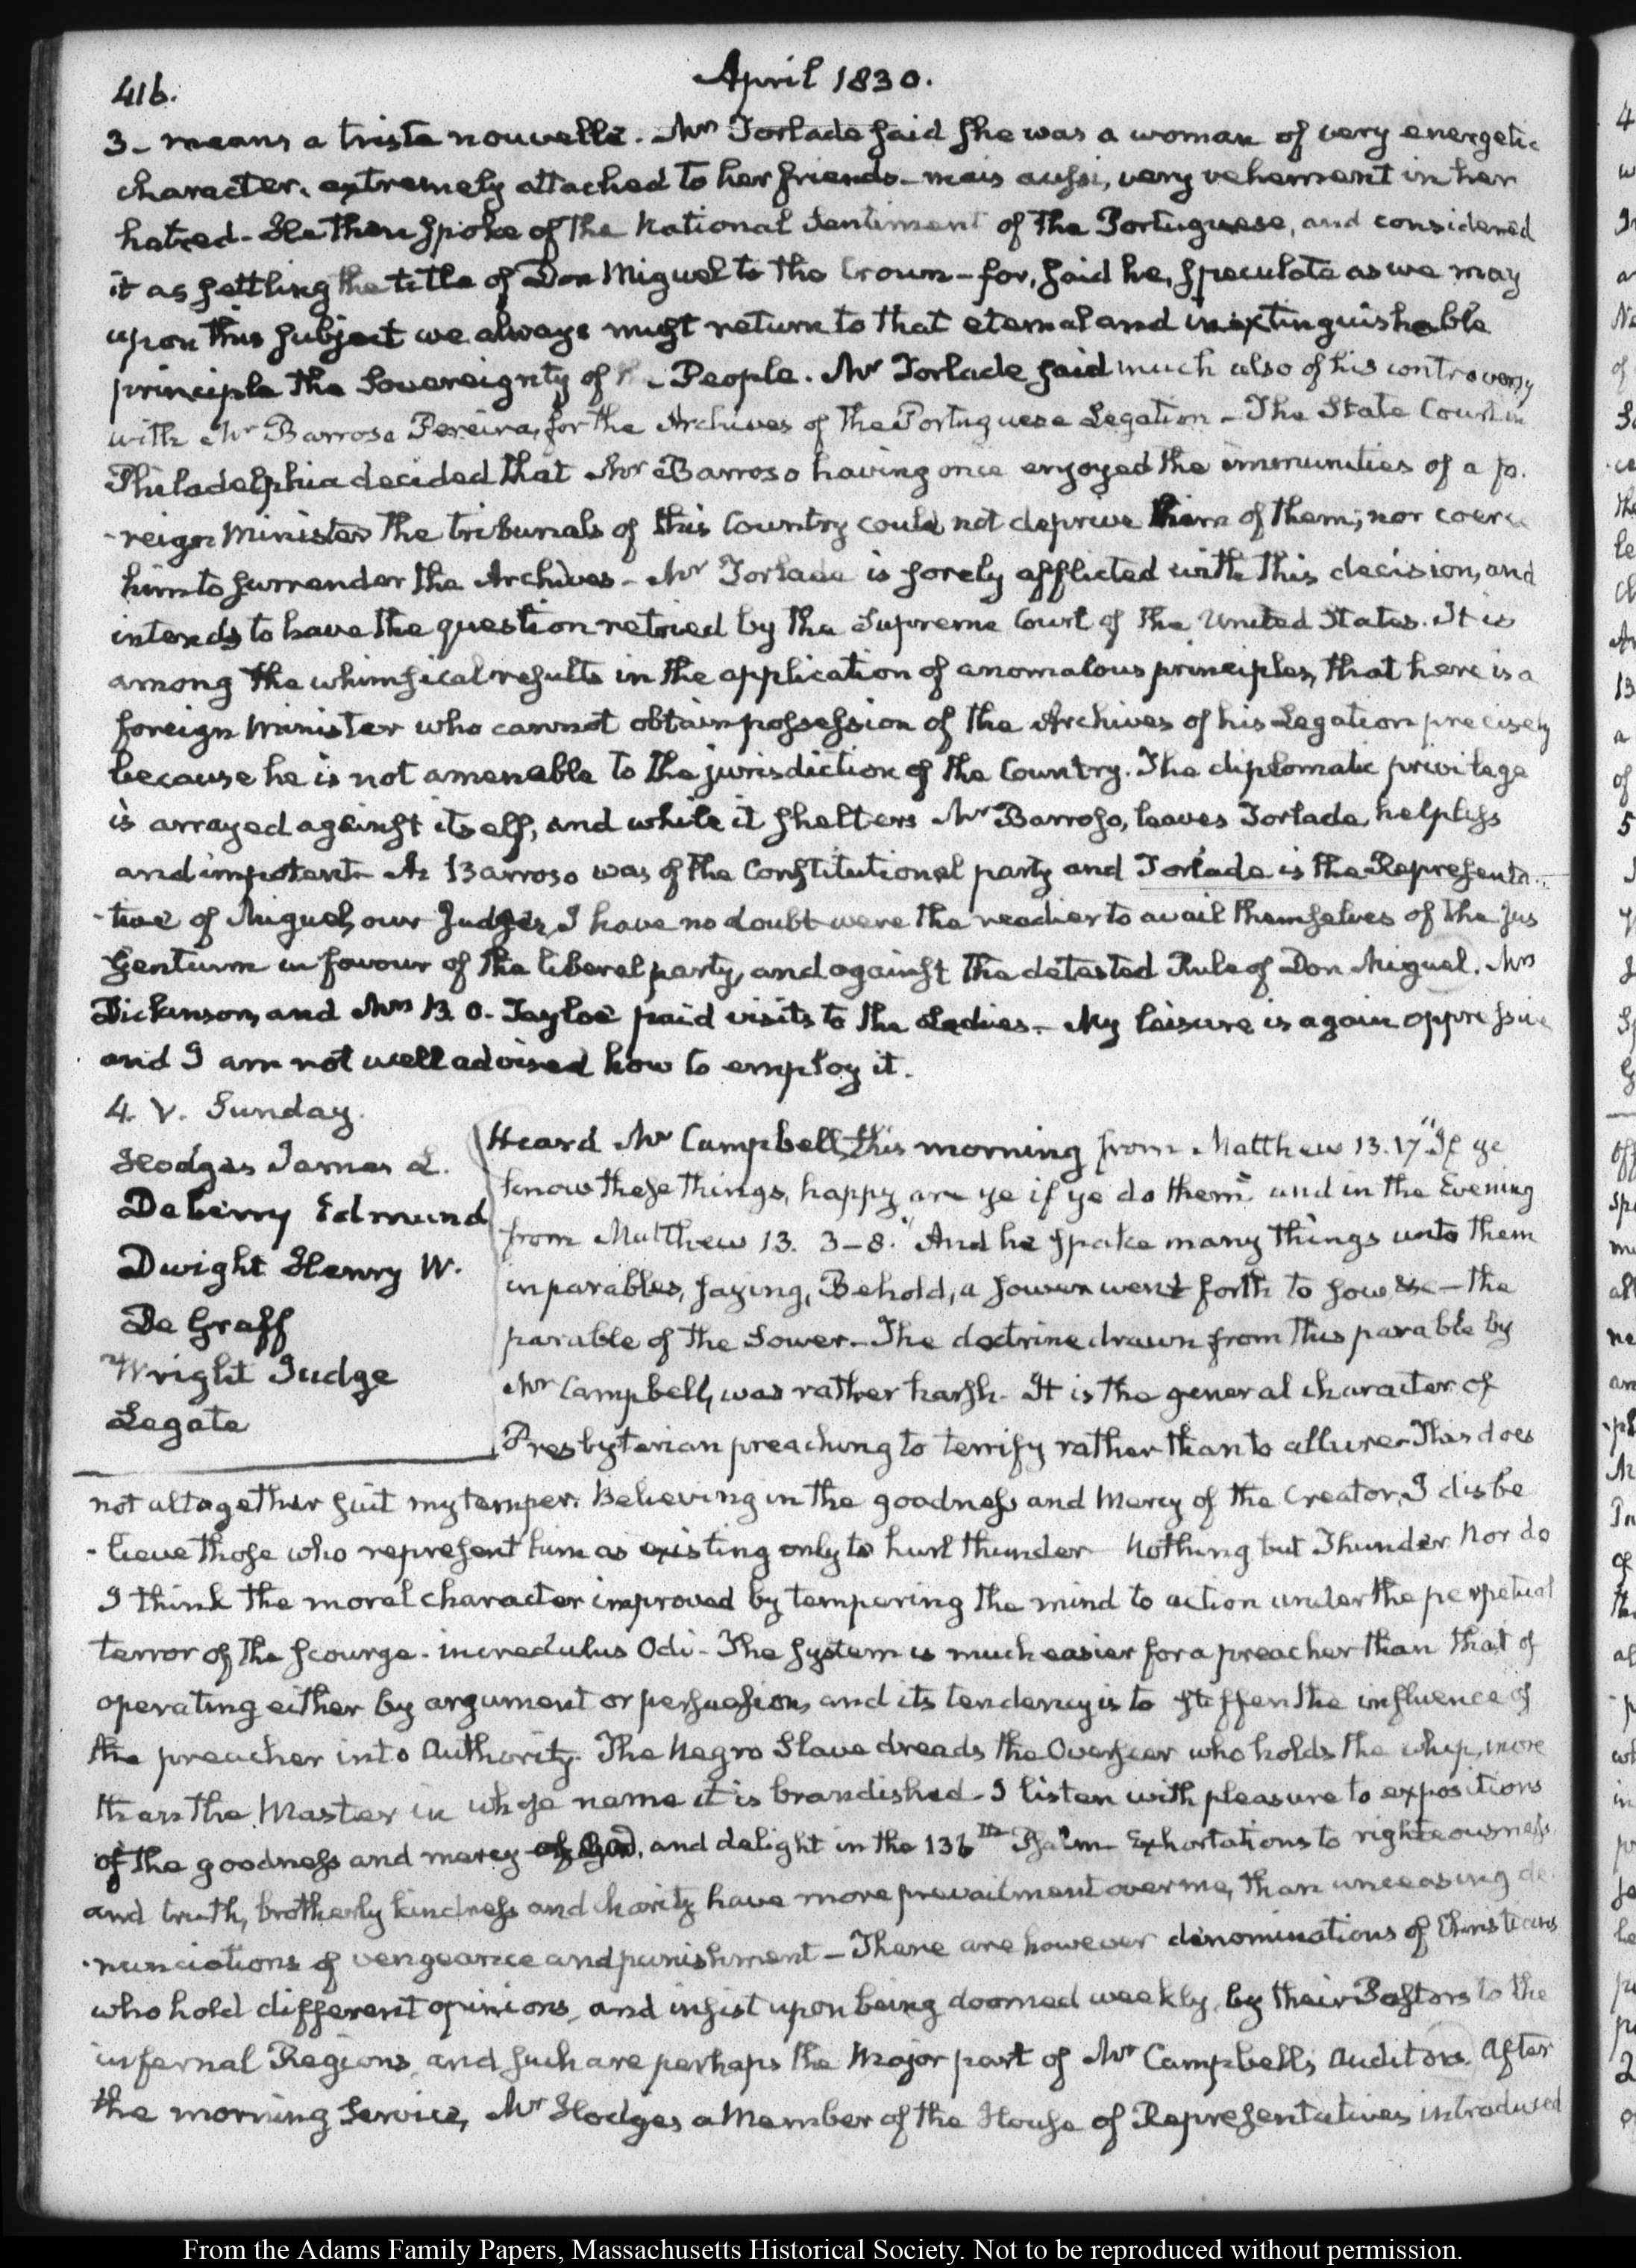 416.
April 1830.
3- means a triste nouvelle. Mr Torlade said she was a woman of very energetic
character, extremely attached to her friends - mais aussi, very vehement in her
hatred - He then spoke of the National Sentiment of the Portuguese, and considered
it as settling the title of Don Miguel to the Crown - for, said he, speculate as we may
upon this subject we always must return to that eternal and inextinguishable
principle the Sovereignty of the People. Mr Torlade said much also of his controversy
with Mr Barroso Pereira, for the Archives of the Portuguese Legation - The State Court in
Philadelphia decided that Mr Barroso having once enjoyed the immunities of a fo-
-reign Minister the tribunals of this Country could not deprive him of them; nor coerce
him to surrender the Archives - Mr Torlade is sorely afflicted with this decision, and
intends to have the question retried by the Supreme Court of the United States. It is
among the whimsical results in the application of anomalous principles, that here is a
foreign Minister who cannot obtain possession of the Archives of his Legation precisely
because he is not amenable to the jurisdiction of the Country. The diplomatic privilege
is arrayed against itself, and while it shelters Mr Barroso, leaves Torlade, helpless
and impotent - As Barroso was of the Constitutional party and Torlade is the Representa-
-tive of Miguel, our Judges, I have no doubt were the readier to avail themselves of the jus
Gentium in favour of the liberal party, and against the detested Rule of Don Miguel. Mrs
Dickinson, and Mrs B. O. Tayloe paid visits to the Ladies. - My leisure is again oppressive
and I am not well advised how to employ it.
4. V. Sunday.
Hodges James L.
Deberry Edmund
Dwight Henry W.
De Graff
Wright Judge
Legate
Heard Mr Campbell, this morning from Matthew 13. 17 "If ye
know these things, happy are ye if ye do them" and in the Evening
from Matthew 13. 3-8. "And he spake many things unto them
in parables, saying, Behold, a sower went forth to sow &c - the
parable of the Sower - The doctrine drawn from this parable by
Mr Campbell, was rather harsh. It is the general character of
Presbyterian preaching to terrify rather than to allure - This does
not altogether suit my temper. Believing in the goodness and Mercy of the Creator, I disbe
-lieve those who represent him as existing only to hurl thunder Nothing but Thunder. Nor do
I think the moral character improved by tempering the mind to action under the perpetual
terror of the scourge - incredulus Odi - The system is much easier for a preacher than that of
operating either by argument or persuasion, and its tendency is to stiffen the influence of
the preacher into Authority. The Negro Slave dreads the Overseer who holds the whip, more
than the Master in whose name it is brandished - I listen with pleasure to expositions
of the goodness and mercy of God, and delight in the 136th Psalm Exhortations to righteousness
and truth, brotherly kindness and charity have more prevailment over me, than unceasing de-
-nunciations of vengeance and punishment - There are however denominations of Christians
who hold different opinions, and insist upon being doomed weekly, by their Pastors to the
infernal Regions, and such are perhaps the Major part of Mr Campbell's Auditors. After
the morning Service, Mr Hodges a Member of the House of Representatives introduced
From the Adams Family Papers, Massachusetts Historical Society. Not to be reproduced without permission.